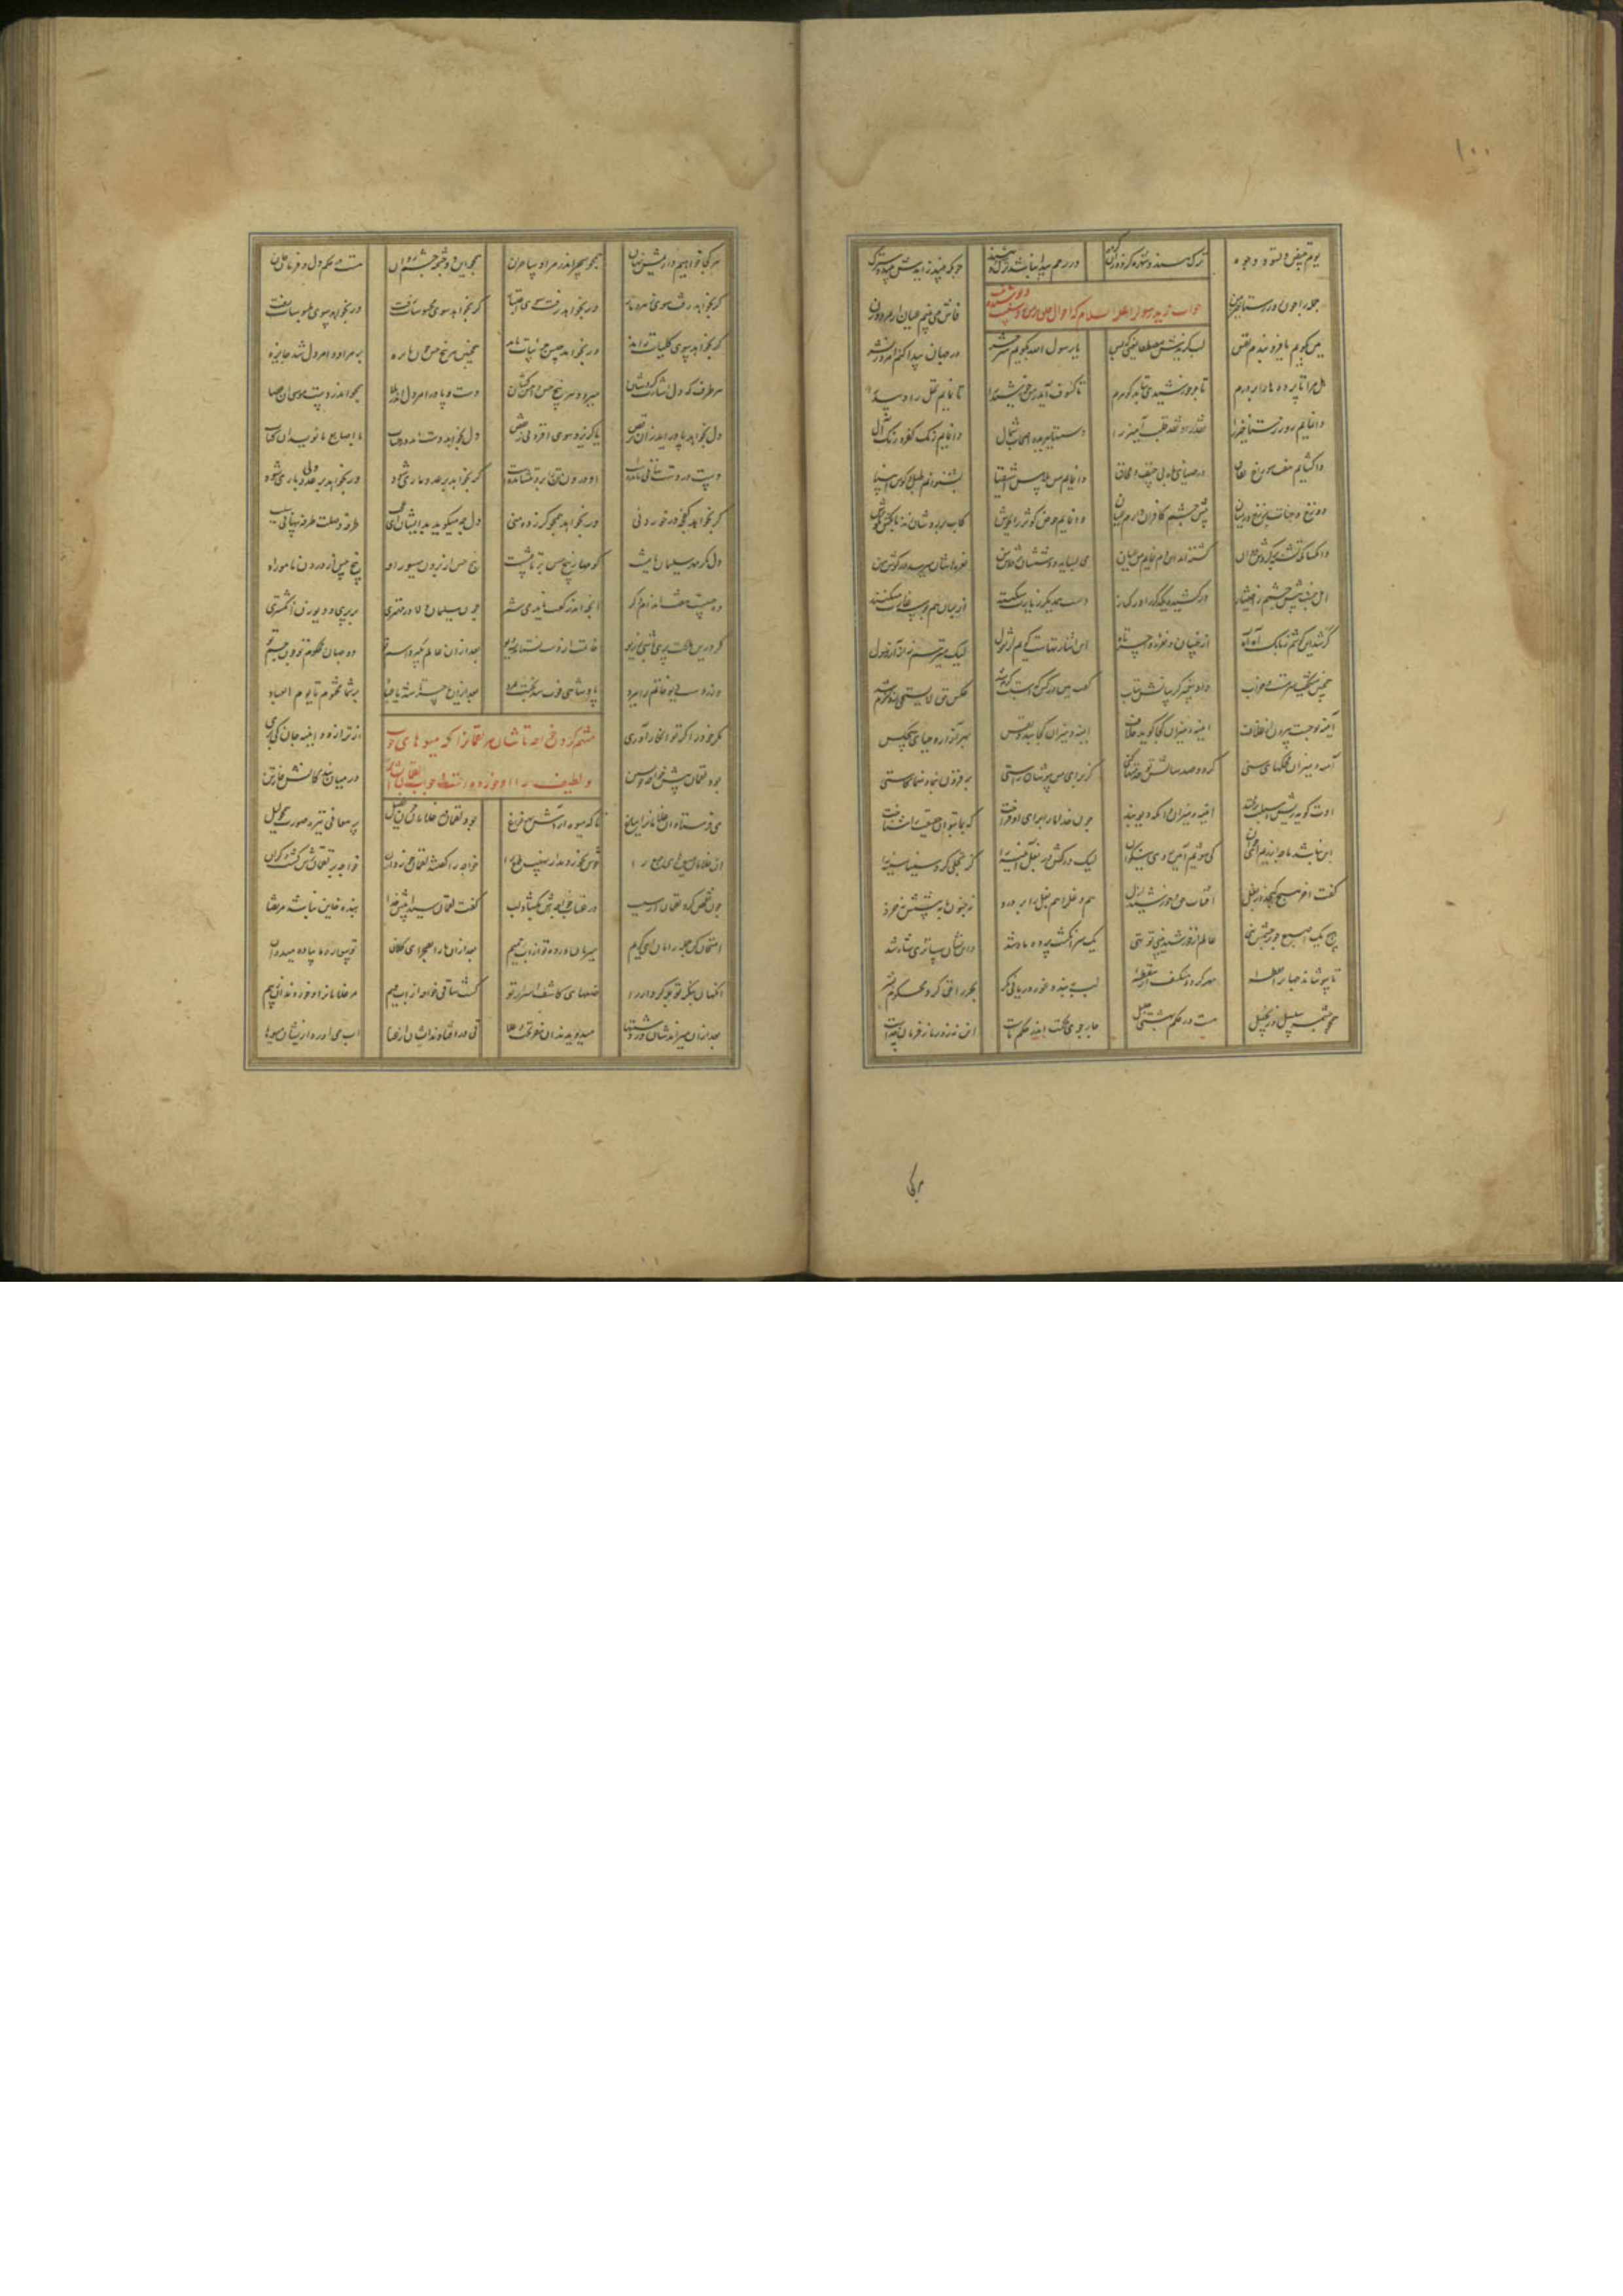 ۱۰۰
یوم تبیض و تسود وجوه ترک هندو شهره گردد زان گروه در رحم پیدا نباشد هند و ترک چونکه زاید بیندش
جمله را چون روز رستاخیز من فاش می بینم عیان از مرد و زن
جواب زید رسول را علیه السلام که احوال خلق بر من پوشیده نیست
هین بگویم یا فرو بندم نفس لب گزیدش مصطفی یعنی که بس یا رسول الله بگویم سر حشر در جهان پیدا کنم امروز نشر
هل مرا تا پرده ها را بر درم تا چو خورشیدی بتابد گوهرم تا کسوف آید ز من خورشید را تا نمایم نخل را و بید را
وا نمایم روز رستاخیز را نقد را و نقد قلب آمیز را دستها ببریده اصحاب شمال وا نمایم رنگ کفر و رنگ آل
وا گشایم هفت سوراخ نفاق در ضیای ماه بی خسف و محاق وا نمایم من پلاس اشقیا بشنوانم طبل و کوس انبیا
دوزخ و جنات و برزخ در میان پیش چشم کافران آرم عیان وا نمایم حوض کوثر را بجوش کاب بر روشان زند بانگش بگوش
وانکسان که تشنه بر گردش دوان گشته اند این دم نمایم من عیان می بساید دوششان بر دوش من نعرهاشان میرسد در گوش من
اهل جنت پیش چشمم ز اختیار در کشیده یکدگر را در کنار دست همدیگر زیارت میکنند از لبان هم بوسه غارت میکنند
کر شد این گوشم ز بانگ آه آه از خسان و نعره واحسرتاه این اشارتهاست گویم از نغول لیک میترسم ز آزار رسول
همچنین میگفت سرمست و خراب داد پیغمبر گریبانش بتاب گفت هین درکش که اسبت گرم شد عکس حق لا یستحی زد شرم شد
آینه تو جست بیرون از غلاف آینه و میزان کجا گوید خلاف آینه و میزان کجا بندد نفس بهر آزار و حیای هیچکس
آینه و میزان محکهای سنی گر دو صد سالش تو خدمتها کنی کز برای من بپوشان راستی بر فزون بنما و منما کاستی
اوت گوید ریش و سبلت بر مخند آینه و میزان و آنگه ریو و پند چون خدا ما را برای آن فراخت که بما بتوان حقیقت را شناخت
این نباشد ما چه ارزیم ای جوان کی شویم آیین روی نیکوان لیک درکش در بغل آیینه را گر تجلی کرد سینا سینه را
گفت آخر هیچ گنجد در بغل آفتاب حق و خورشید ازل هم دغل را هم بغل را بر درد نه جنون ماند به پیشش نه خرد
هیچ یک اصبع چو بر چشمت نهی عالم از خورشید بینی تو تهی یک سر انگشت پرده ماه شد وین نشان ساتری شاه شد
تا بپوشاند جهان را نقطه مهر گردد منکسف از سقطه لب ببند و غور دریایی نگر بحر را حق کرد محکوم بشر
همچو چشمه سلسبیل و زنجبیل هست در حکم بهشتی جلیل چار جوی جنت اندر حکم ماست این نه زور ما ز فرمان خداست
هر کجا خواهیم داریمش روان همچو سحر اندر مراد ساحران همچو این دو چشمه چشم روان هست در حکم دل و فرمان جان
گر بخواهد رفت سوی زهر و مار ور بخواهد رفت سوی اعتبار گر بخواهد سوی محسوسات رفت ور بخواهد سوی ملبوسات رفت
گر بخواهد سوی کلیات راند ور بخواهد حبس جزئیات ماند همچنین هر پنج حس چون نایزه بر مراد و امر دل شد جایزه
هر طرف که دل اشارت کردشان میرود هر پنج حس دامن کشان دست و پا در امر دل اندر ملا همچو اندر دست موسی آن عصا
دل بخواهد پا در آید زو برقص یا گریزد سوی افزونی ز نقص دل بخواهد دست آید در حساب با اصابع تا نویسد او کتاب
دست در دست نهانی مانده است او درون تن را برون بنشانده است گر بخواهد بر عدو ماری شود ور بخواهد بر ولی یاری شود
گر بخواهد کفچه در خوردنی ور بخواهد همچو گرز ده منی دل چه میگوید بدیشان ای عجب طرفه وصلت طرفه پنهانی سبب
دل مگر مهر سلیمان یافتست کو مهار پنج حس بر تافتست پنج حسی از برون میسور او پنج حسی از درون مامور او
ده حس است و هفت اندام و دگر آنچه اندر گفت ناید می شمر چون سلیمانی دلا در مهتری بر پری و دیو زن انگشتری
گر درین ملکت بری باشی ز ریو خاتم از دست تو نستاند سه دیو بعد از آن عالم بگیرد اسم تو دو جهان محکوم تو چون جسم تو
ور ز دستت دیو خاتم را ببرد پادشاهی فوت شد بختت بمرد بعد از آن یا حسرتا شد یا عباد بر شما محتوم تا یوم التناد
مکر خود را گر تو انکار آوری از ترازو و آینه جان کی بری
متهم کردن خواجه تاشان مر لقمان را که میوهای خوب
و لطیف را او خورده است و جواب لقمان ایشان را
بود لقمان پیش خواجه خویشتن در میان بندگانش خوارتن
می فرستاد او غلامان را بباغ تا که میوه آیدش بهر فراغ بود لقمان در غلامان چون طفیل پر معانی تیره صورت همچو لیل
آن غلامان میوهای جمع را خوش بخوردند از نهیب طمع را خواجه را گفتند لقمان خورد آن خواجه بر لقمان ترش گشت و گران
چون تفحص کرد لقمان از سبب در عتاب خواجه اش بگشاد لب گفت لقمان سیدا پیش خدا بنده خاین نباشد مرتضا
امتحان کن جمله ما را ای کریم سیرمان در ده تو از آب حمیم بعد از آن ما را بصحرای کلان تو سواره ما پیاده میدوان
آنگهان بنگر تو بد کردار را صنعهای کاشف اسرار تو گشت ساقی خواجه از آب حمیم مر غلامان را و خوردند آن ز بیم
بعد از آن میراندشان در دشتها میدویدند آن نفر تحت و علا قی در افتادند ایشان از عنا آب می آورد زیشان میوها